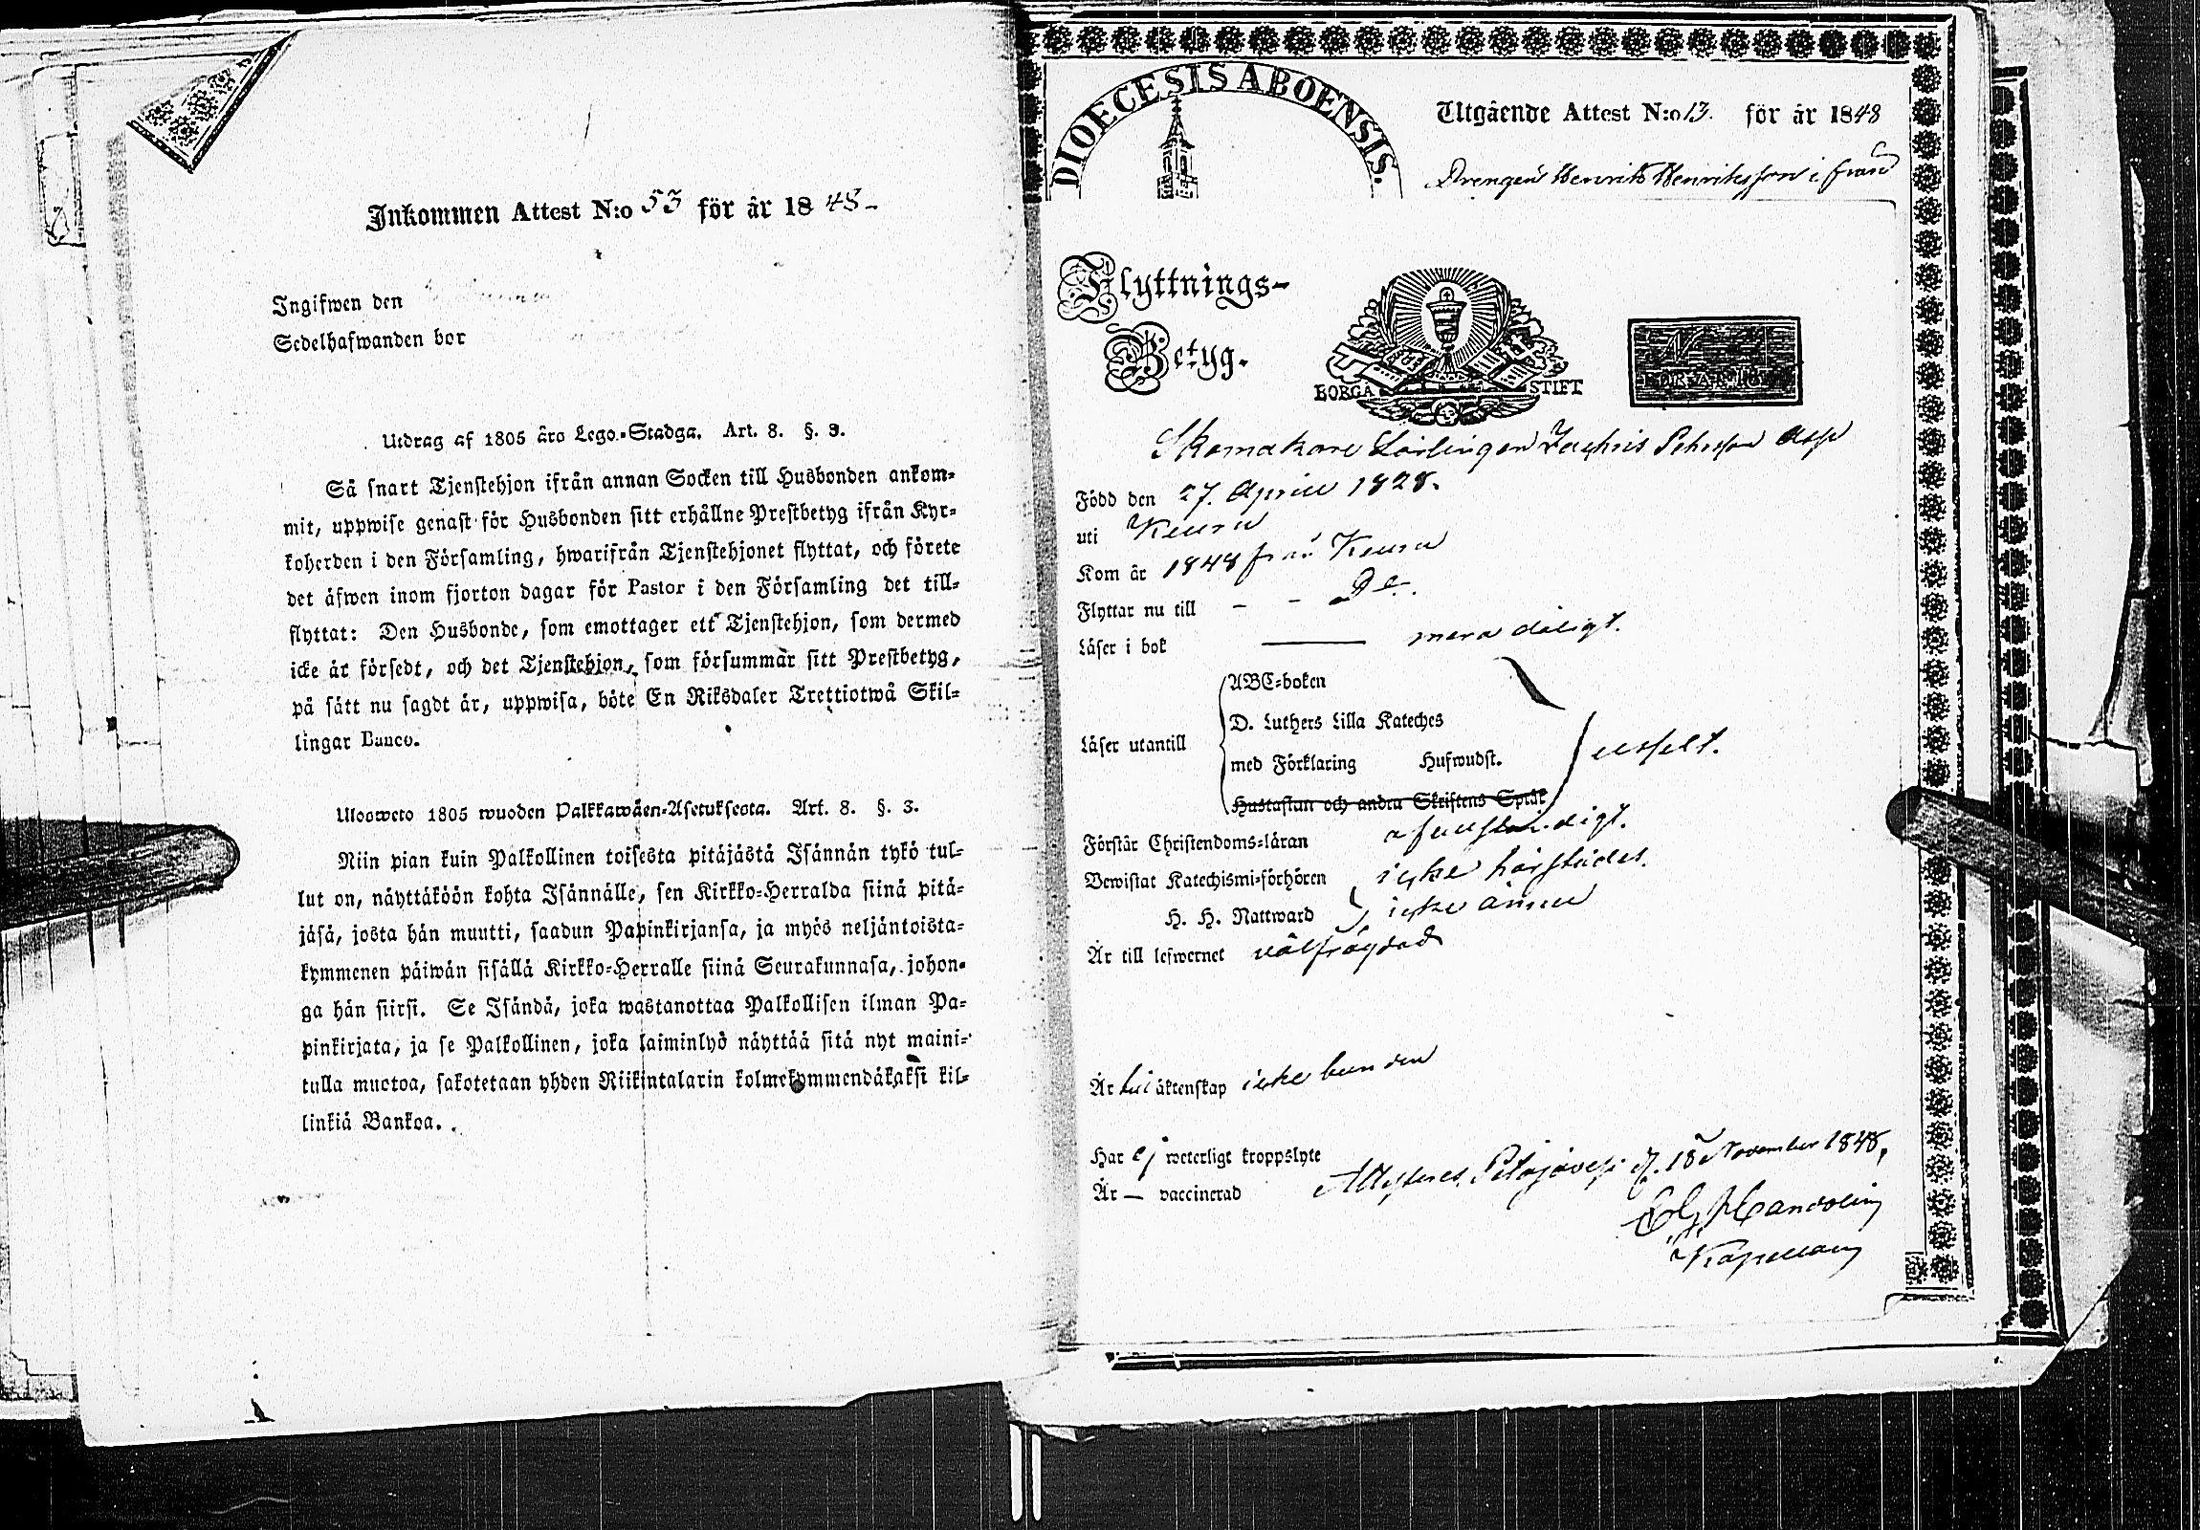 Inkommen Attest N:o 53 för år 1848
Ingifwen den
Sedelhafwanden bor
Utdrag af 1805 års Lego-Stadga. Art. 8. §. 3.
Så snart Tjenstehjon ifrån annan Socken till Husbonden ankom-
mit, uppwise genast för Husbonden sitt erhållne Prestbetyg ifrån Kyr-
koherden i den Församling, hwarifrån Tjenstehjonet flyttat, och förete
det äfwen inom fjorton dagar för Pastor i den Församling det till-
flyttat: Den Husbonde, som emottager ett Tjenstehjon, som dermed
icke är försedt, och det Tjenstehjon, som försummar sitt Prestbetyg,
på sätt nu sagdt är, uppwisa, böte En Riksdaler Trettiotwå Skil-
lingar Banco.
Ulosweto 1805 wuoden Palkkawäen-Asetuksesta. Art. 8. §. 3.
Niin pian kuin Palkollinen toisesta pitäjästä Isännän tykö tul-
lut on, näyttäköön kohta Isännälle, sen Kirkko-Herralda siinä pitä-
jäsä, josta hän muutti, saadun Papinkirjansa, ja myös neljäntoista-
kymmenen päiwän sisällä Kirkko-Herralle siinä Seurakunnasa, johon-
ga hän siirsi. Se Isändä, joka wastanottaa Palkollisen ilman Pa-
pinkirjata, ja se Palkollinen, joka laiminlyö näyttää sitä nyt maini-
tulla muotoa, sakotetaan yhden Riikintalarin kolmekymmendäkaksi kil-
linkiä Bankoa.
DIOECESIS ABOENSIS.
Utgående Attest N:o 13. för år 1848
Drengen Henrik Henriksson ifrån
Flyttnings-
Betyg.
BORGÅ STIFT
Skomakare Lärlingen Zachris Pehrsson Asp
Född den 27. Aprill 1828.
uti Keuru
Kom år 1848 från Keuru
Flyttar nu till - - Do.
Läser i bok mera dåligt.
ABC-boken
D. Luthers Lilla Kateches
Läser utantill
med Förklaring Hufwudst.
uselt.
Hustaflan och andra Skriftens Språk
Förstår Christendoms-läran ofullständigt.
Bewistat Katechismi-förhören icke härstädes.
H. H. Nattward icke ännu
Är till lefwernet välfrägdad
Är till äktenskap icke bunden
Har ej weterligt kroppslyte
Är — vaccinerad
Attesteras. Petäjävesi d. 18 November 1848,
Kapellan